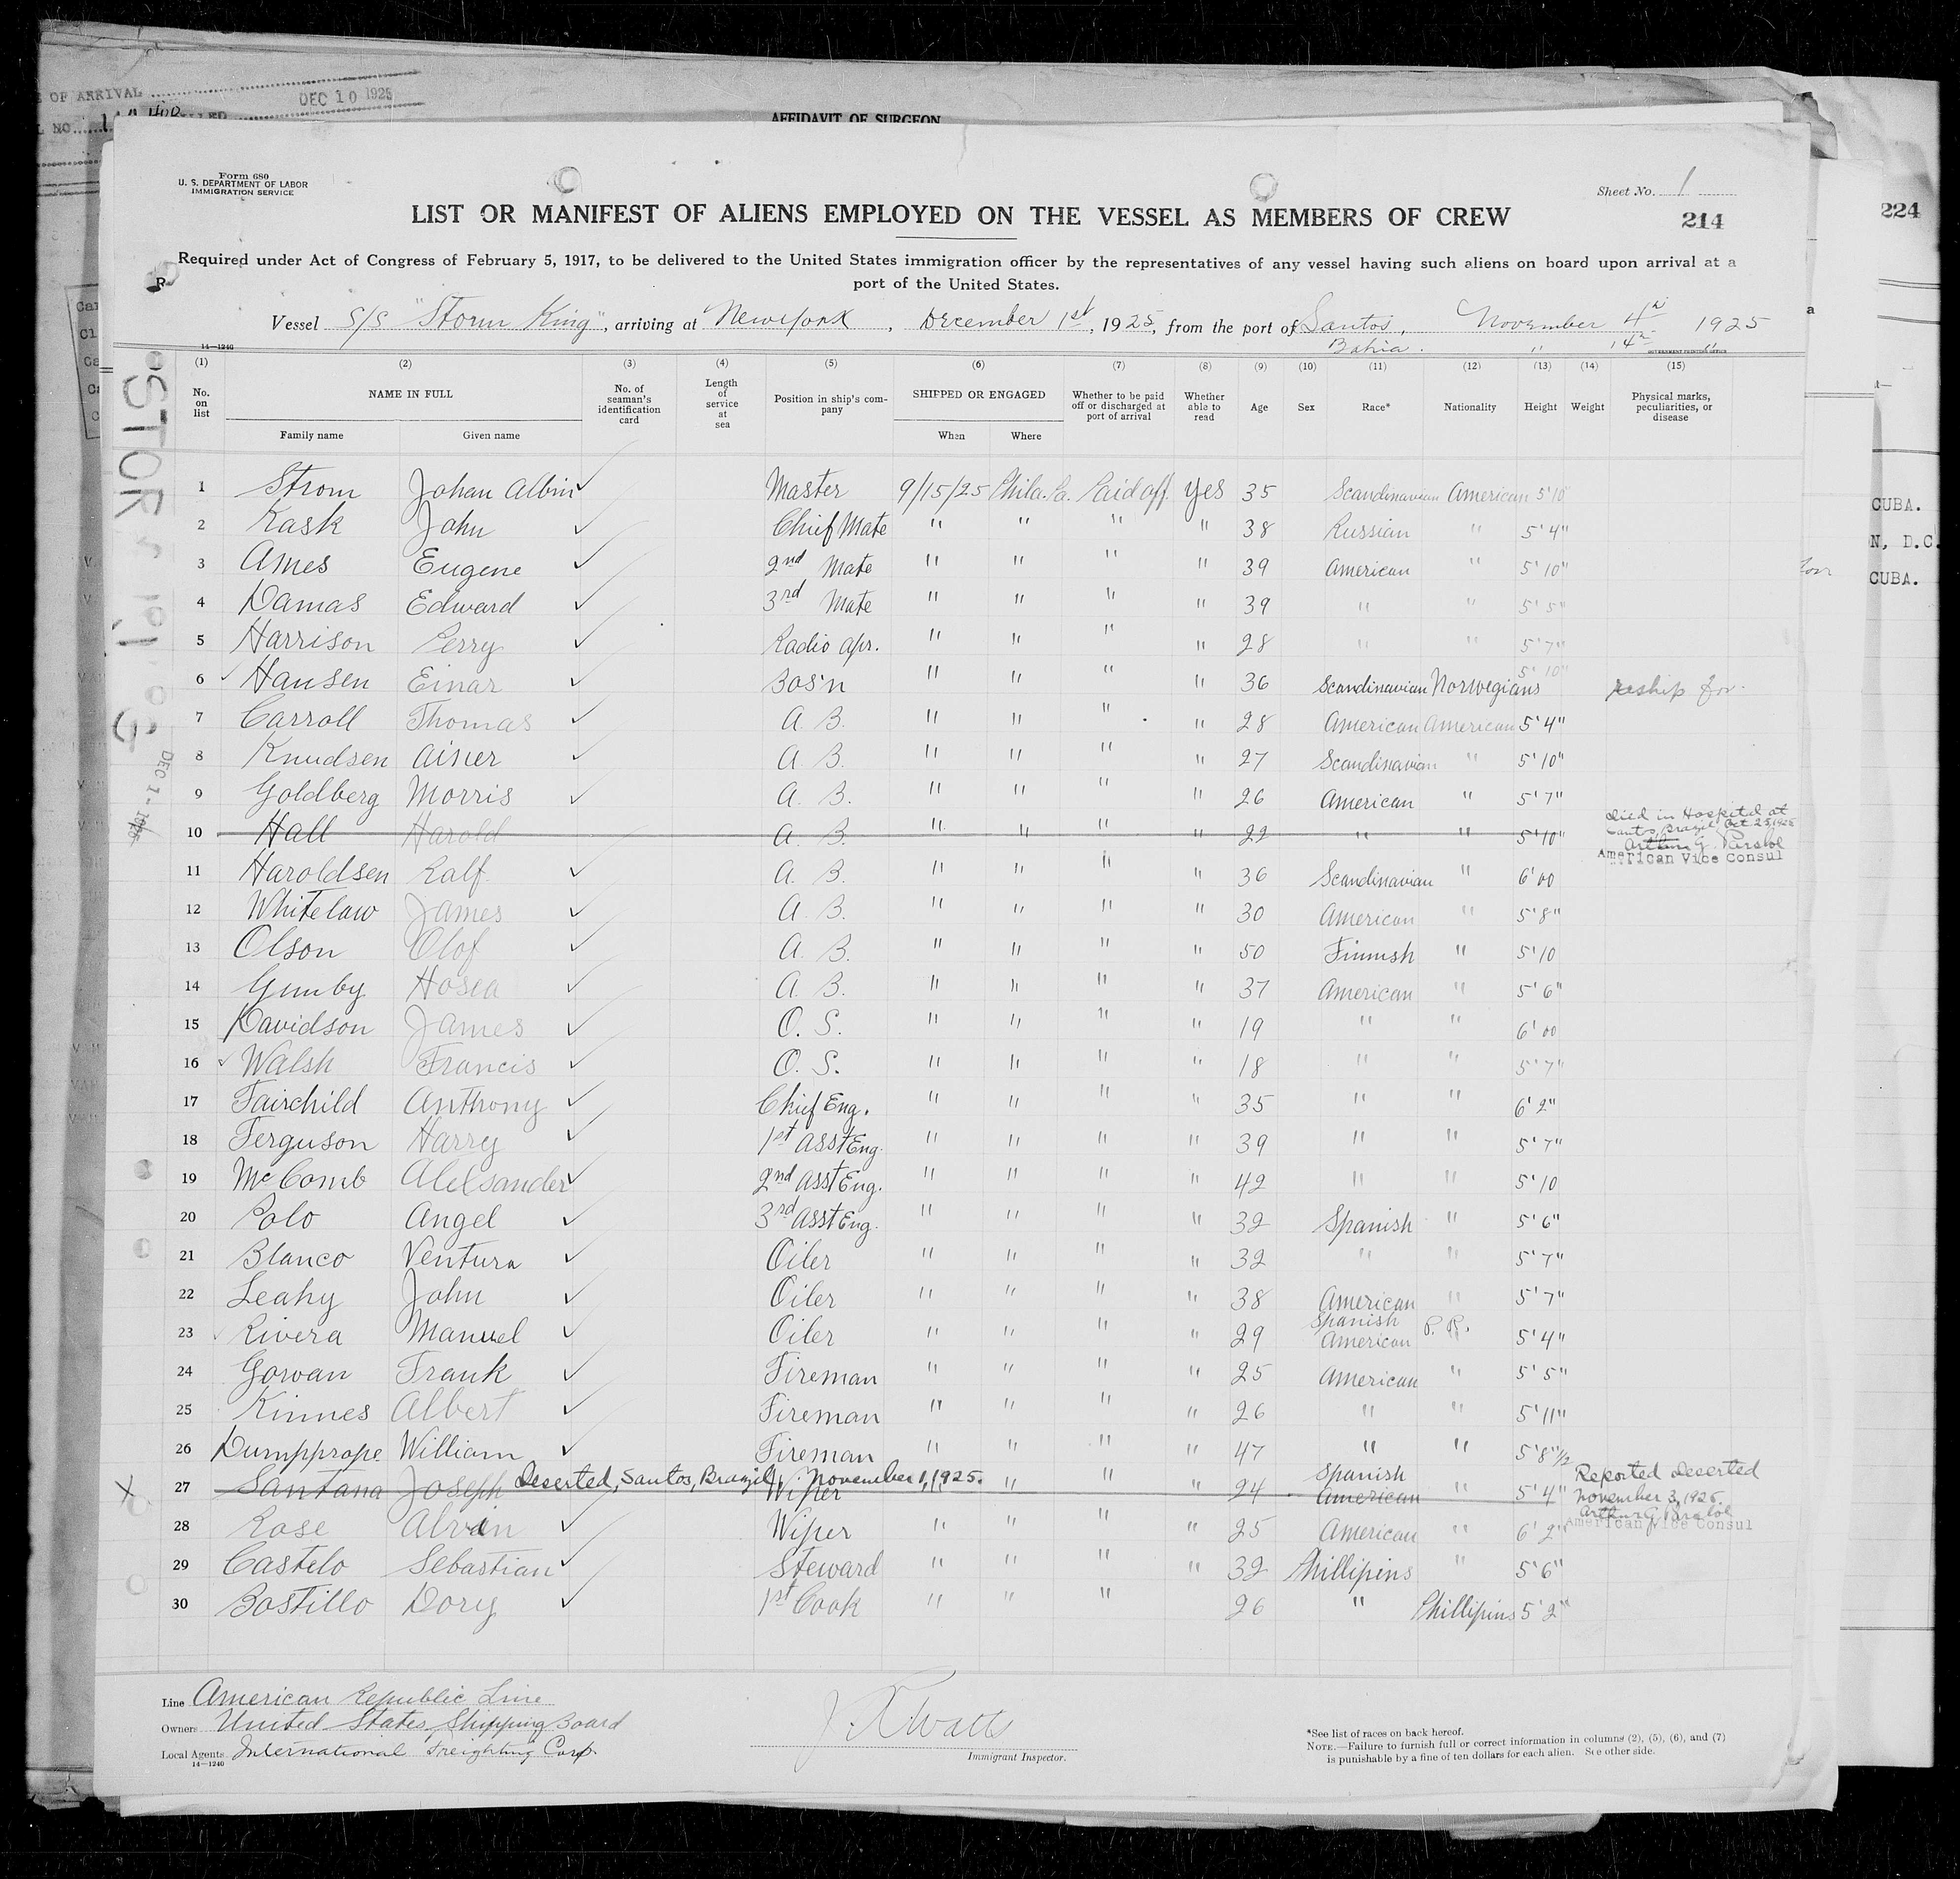 OF ARRIVAL
DEC 10 1925
AFFIDAVIT OF SURGEON
Form 680
U. S. DEPARTMENT OF LABOR
IMMIGRATION SERVICE
Sheet No. 1
LIST OR MANIFEST OF ALIENS EMPLOYED ON THE VESSEL AS MEMBERS OF CREW
214
224
Required under Act of Congress of February 5, 1917, to be delivered to the United States immigration officer by the representatives of any vessel having such aliens on board upon arrival at a
port of the United States.
Vessel S/S "Storm King", arriving at New York, December 1st, 1925, from the port of Santos, November 4th 1925
Bahia. " 14th "
14—1240
GOVERNMENT PRINTING OFFICE
(1) (2) (3) (4) (5) (6) (7) (8) (9) (10) (11) (12) (13) (14) (15)
No. on list NAME IN FULL Family name Given name No. of seaman's identification card Length of service at sea Position in ship's company SHIPPED OR ENGAGED When Where Whether to be paid off or discharged at port of arrival Whether able to read Age Sex Race* Nationality Height Weight Physical marks, peculiarities, or disease
1 Strom Johan Albin ✓ Master 9/15/25 Phila. Pa. Paid off yes 35 Scandinavian American 5'10"
2 Kask John ✓ Chief Mate " " " " 38 Russian " 5'4"
3 Ames Eugene ✓ 2nd Mate " " " " 39 American " 5'10"
4 Damas Edward ✓ 3rd Mate " " " " 39 " " 5'5"
5 Harrison Perry ✓ Radio Opr. " " " " 28 " " 5'7"
6 Hansen Einar ✓ Bos'n " " " " 36 Scandinavian Norwegians 5'10" reship for.
7 Carroll Thomas ✓ A. B. " " " " 28 American American 5'4"
8 Knudsen Aisier ✓ A. B. " " " " 27 Scandinavian " 5'10"
9 Goldberg Morris ✓ A. B. " " " " 26 American " 5'7"
10 Hall Harold A. B. " " " " 22 " " 5'10" Died in Hospital at
Santos, Brazil Oct 25, 1925
American Vice Consul
11 Haroldsen Ralf. ✓ A. B. " " " " 36 Scandinavian " 6'00
12 Whitelaw James ✓ A. B. " " " " 30 American " 5'8"
13 Olson Olof ✓ A. B. " " " " 50 Finnish " 5'10
14 Gumby Hosea ✓ A. B. " " " " 37 American " 5'6"
15 Davidson James ✓ O. S. " " " " 19 " " 6'00
16 Walsh Francis ✓ O. S. " " " " 18 " " 5'7"
17 Fairchild Anthony ✓ Chief Eng. " " " " 35 " " 6'2"
18 Ferguson Harry ✓ 1st Asst Eng. " " " " 39 " " 5'7"
19 McComb Alelsander ✓ 2nd Asst Eng. " " " " 42 " " 5'10
20 Polo Angel ✓ 3rd Asst Eng. " " " " 32 Spanish " 5'6"
21 Blanco Ventura ✓ Oiler " " " " 32 " " 5'7"
22 Leahy John ✓ Oiler " " " " 38 American " 5'7"
23 Rivera Manuel ✓ Oiler " " " " 29 Spanish American P. R. 5'4"
24 Gowan Frank ✓ Fireman " " " " 25 American " 5'5"
25 Kinnes Albert ✓ Fireman " " " " 26 " " 5'11"
26 Dumpprope William ✓ Fireman " " " " 47 " " 5'8"1/2
27 Santana Joseph Deserted, Santos, Brazil, November 1, 1925. Wiper " " " " 24 Spanish American " 5'4" Reported Deserted
November 3, 1925.
American Vice Consul
28 Rose Alvin ✓ Wiper " " " " 25 American " 6'2"
29 Castelo Sebastian ✓ Steward " " " " 32 Phillipins " 5'6"
30 Bostillo Dory ✓ 1st Cook " " " 26 " Phillipins 5'2"
Line American Republic Line
Owners United States Shipping Board
Local Agents International Freighting Corp.
14—1240
J. Watts
Immigrant Inspector.
*See list of races on back hereof.
NOTE.—Failure to furnish full or correct information in columns (2), (5), (6), and (7)
is punishable by a fine of ten dollars for each alien. See other side.
CUBA.
N, D.C.
CUBA.
DEC 1 - 1925